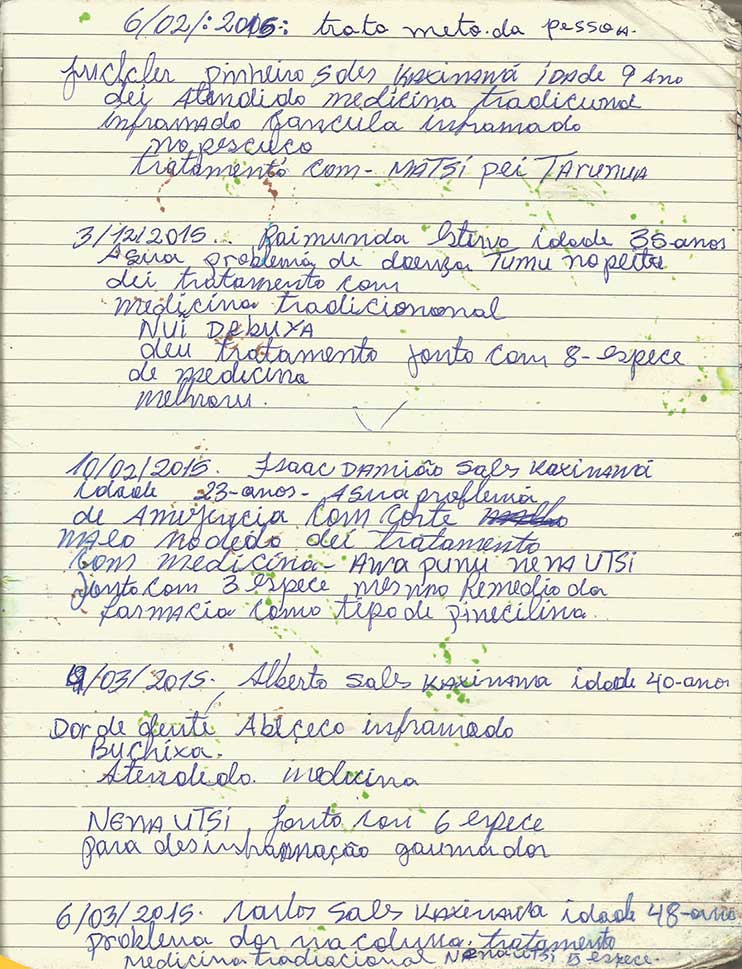 6/02/: 2015: trata meto. da pessoa.
Pinheiro Sales KAXINAWÁ idade 9 Ano
dei Atendido medicina tradiciunal
inframado Gancula inframado
no pescuco
tratamento com - MATSI pei TARUNUA
3/12/2015... Raimunda idade 35-anos
Asua problema de doença Tumu no peito
dei tratamento com
medicina tradiciononal
NUI DEBUXA
deu tratamento jonto com 8-espece
de medicina
melhorou.
10/02/2015. Isaac DAMIÃO Sales Kaxinawá
idade 23-anos- Asua problema
de Amirjencia com corte
MALO no dedo dei tratamento
com medicina- Awa punu nena UTSI
jonto com 3 espece mesmo Remedio da
farmacia como tipo de pinecilina.
9/03/2015. Alberto Sales KAXINAWA idade 40-anos
Dor de dente Abiçeco inframado
Buchixa.
Atendido medicina
NENA UTSI jonto com 6 espece
para desinframação gaumador
6/03/2015. Carlos Sales KAXINAWA idade 48-ano
problema dor na coluna. tratamento
medicina tradiacional NENA UTSI 5 espece.